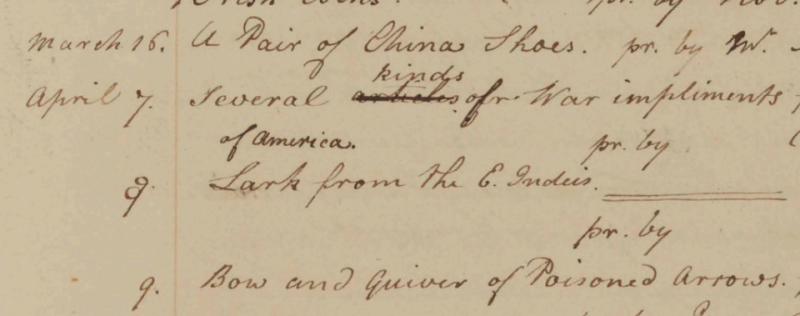 March 16. A Pair of China Shoes. pr. by Mr.
kinds
April 7. Several articles of War impliments
of America. pr. by
9. Lark from the E. Indeis.
pr. by
9. Bow and Quiver of Poisoned Arrows.